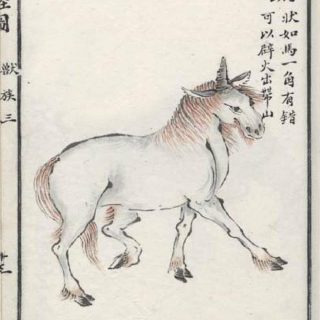 狀如馬一角有錯
可以辟火出帶山
圖
獸族三